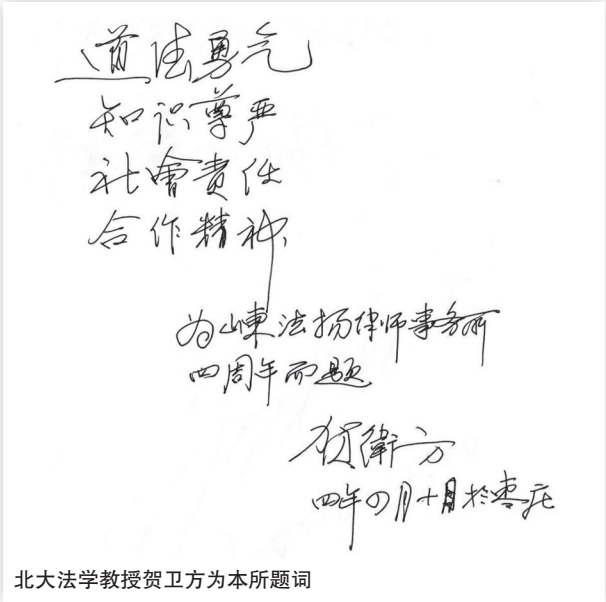 道德勇气
知识尊严
社會责任
合作精神
为山東法扬律师事务所
四周年而题
贺衛方
四年四月十日於枣庄
北大法学教授贺卫方为本所题词